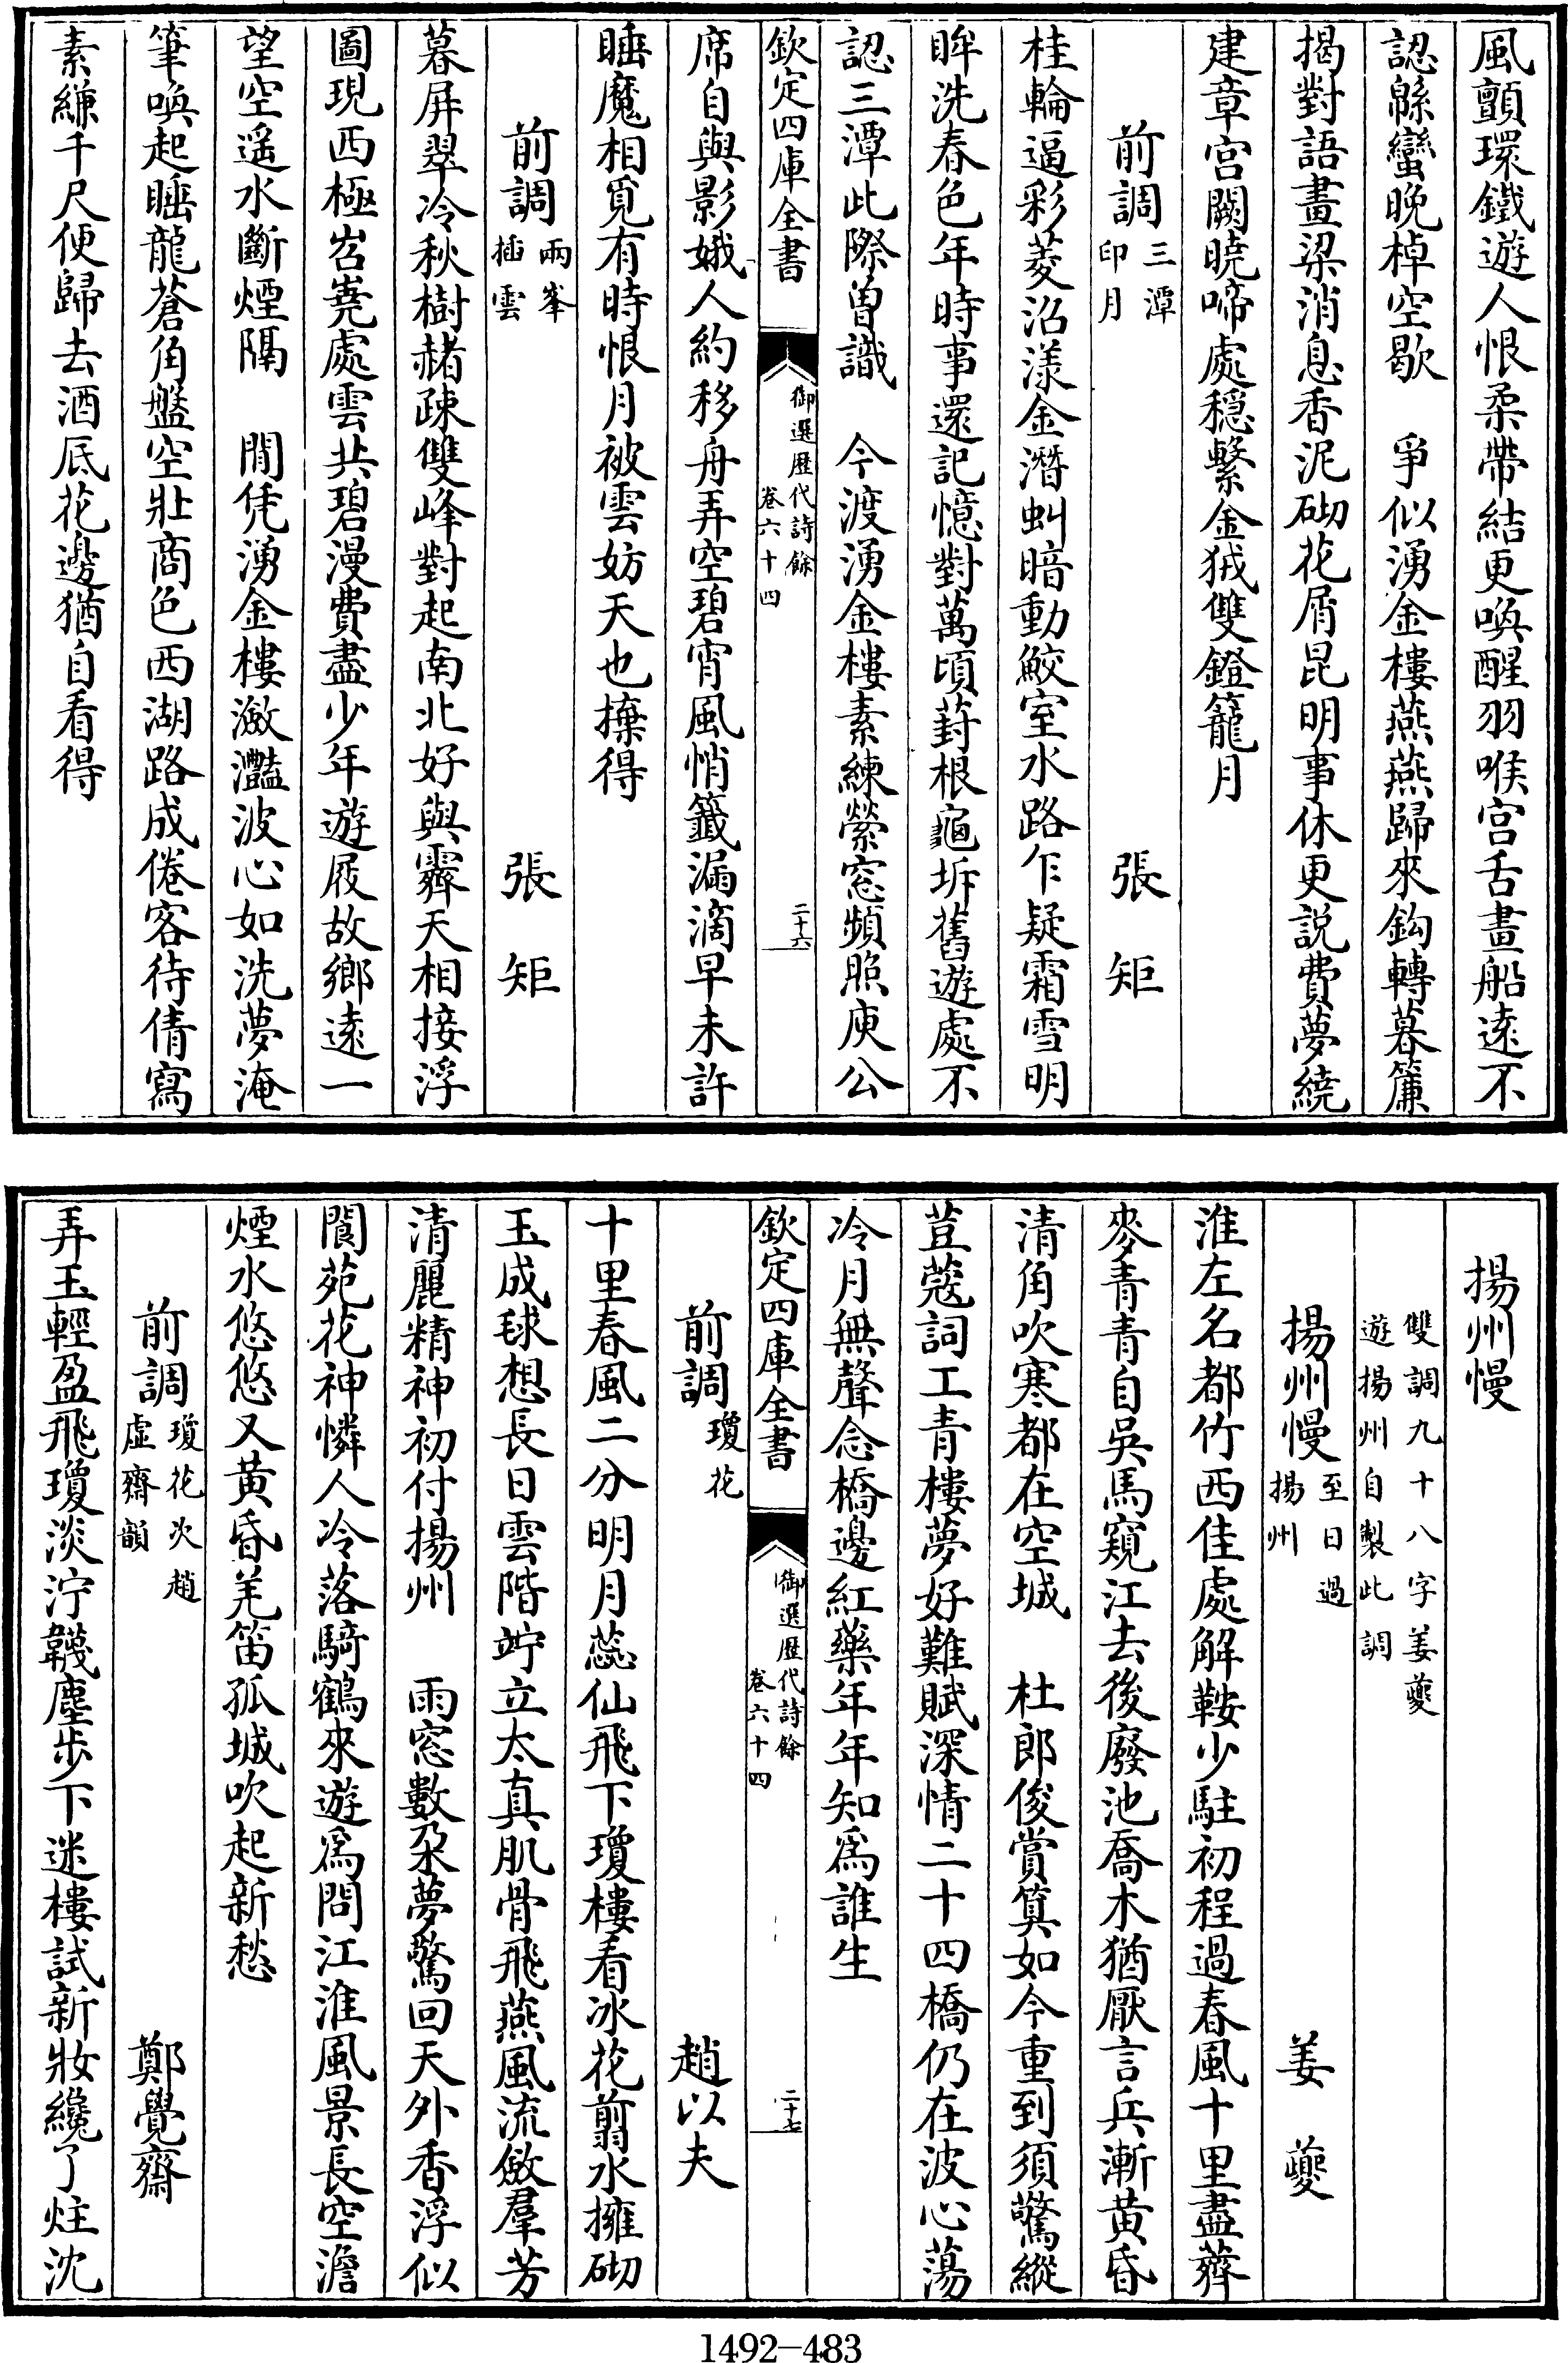 風顫環鐵遊人恨柔帶結更喚醒羽喉宫舌畫船遠不
認緜蠻晚棹空歇　爭似湧金樓燕燕歸來鈎轉暮簾
揭對語畫梁消息香泥砌花屑昆明事休更説費夢繞
建章宫闕曉啼處穩繫金狨雙鐙籠月
前調三潭印月　張矩
桂輪逼彩菱沼漾金潛虬暗動鮫室水路乍疑霜雪明
眸洗春色年時事還記憶對萬頃葑根龜坼舊遊處不
認三潭此際曽識　今渡湧金樓素練縈窓頻照庾公
欽定四庫全書　御選歴代詩餘卷六十四　二十六
席自與影娥人約移舟弄空碧宵風悄籤漏滴早未許
睡魔相覓有時恨月被雲妨天也拚得
前調兩峯插雲　張矩
暮屏翠冷秋樹赭疎雙峰對起南北好與霽天相接浮
圖現西極岧嶤處雲共碧漫費盡少年遊屐故鄉遠一
望空遥水斷煙隔　閒凭湧金樓瀲灩波心如洗夢淹
筆喚起睡龍蒼角盤空壯商色西湖路成倦客待倩寫
素縑千尺便歸去酒底花邊猶自看得
揚州慢
雙調九十八字姜夔
遊揚州自製此調
揚州慢至日過揚州　姜夔
淮左名都竹西佳處解鞍少駐初程過春風十里盡薺
麥青青自吳馬窺江去後廢池喬木猶厭言兵漸黄昏
清角吹寒都在空城　杜郎俊賞算如今重到須驚縱
荳蔻詞工青樓夢好難賦深情二十四橋仍在波心蕩
冷月無聲念橋邊紅藥年年知爲誰生
欽定四庫全書　御選歴代詩餘卷六十四　二十七
前調瓊花　趙以夫
十里春風二分明月蕊仙飛下瓊樓看冰花翦水擁砌
玉成毬想長日雲階竚立太真肌骨飛燕風流斂羣芳
清麗精神初付揚州　雨窓數朶夢驚回天外香浮似
閬苑花神憐人冷落騎鶴來遊爲問江淮風景長空澹
煙水悠悠又黄昏羌笛孤城吹起新愁
前調瓊花次趙虛齋韻　鄭覺齋
弄玉輕盈飛瓊淡泞韈塵步下迷樓試新妝纔了炷沈
1492—483